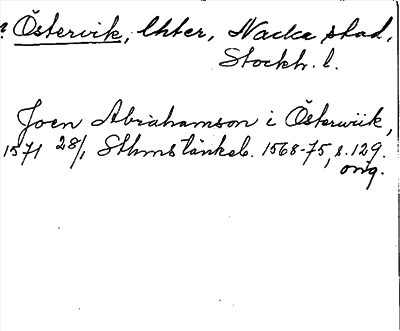 Östervik, Ekter, Nacka stad,
Stockh. l.
Joen Abrahamson i Österwiik,
1571 28/1 Sthms tänkeb. 1568-75, s. 129.
orig.